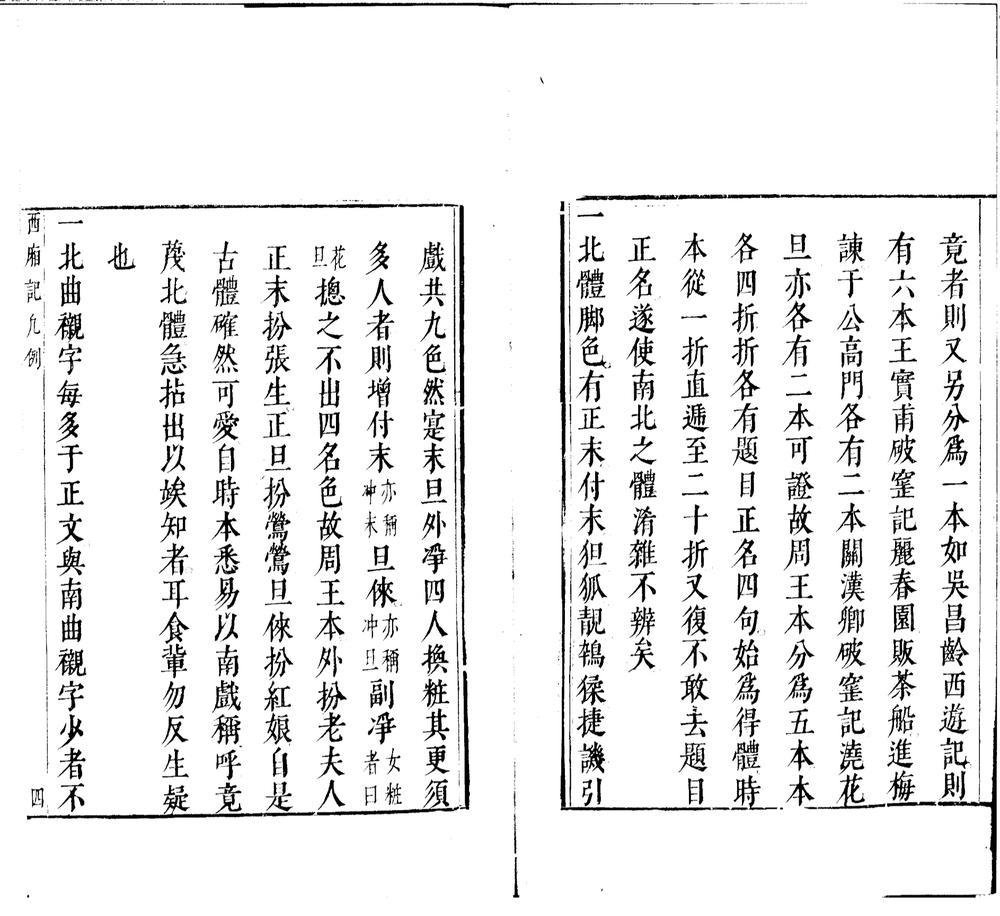 竟者則又另分爲一本如吳昌齡西遊記則
有六本王實甫破窰記麗春園販茶船進梅
諫于公高門各有二本關漢卿破窰記澆花
旦亦各有二本可證故周王本分爲五本本
各四折折各有題目正名四句始爲得體時
本從一折直遞至二十折又復不敢去題目
正名遂使南北之體淆雜不辨矣
一北體脚色有正末付末狚狐靚鴇猱捷譏引
戲共九色然寔末旦外凈四人換粧其更須
多人者則增付末亦稱冲末旦俫亦稱冲旦副凈女粧者曰
花旦摠之不出四名色故周王本外扮老夫人
正末扮張生正旦扮鶯鶯旦俫扮紅娘自是
古體確然可愛自時本悉易以南戲稱呼竟
蔑北體急拈出以竢知者耳食輩勿反生疑
也
一北曲襯字每多于正文與南曲襯字少者不
西廂記凡例
四